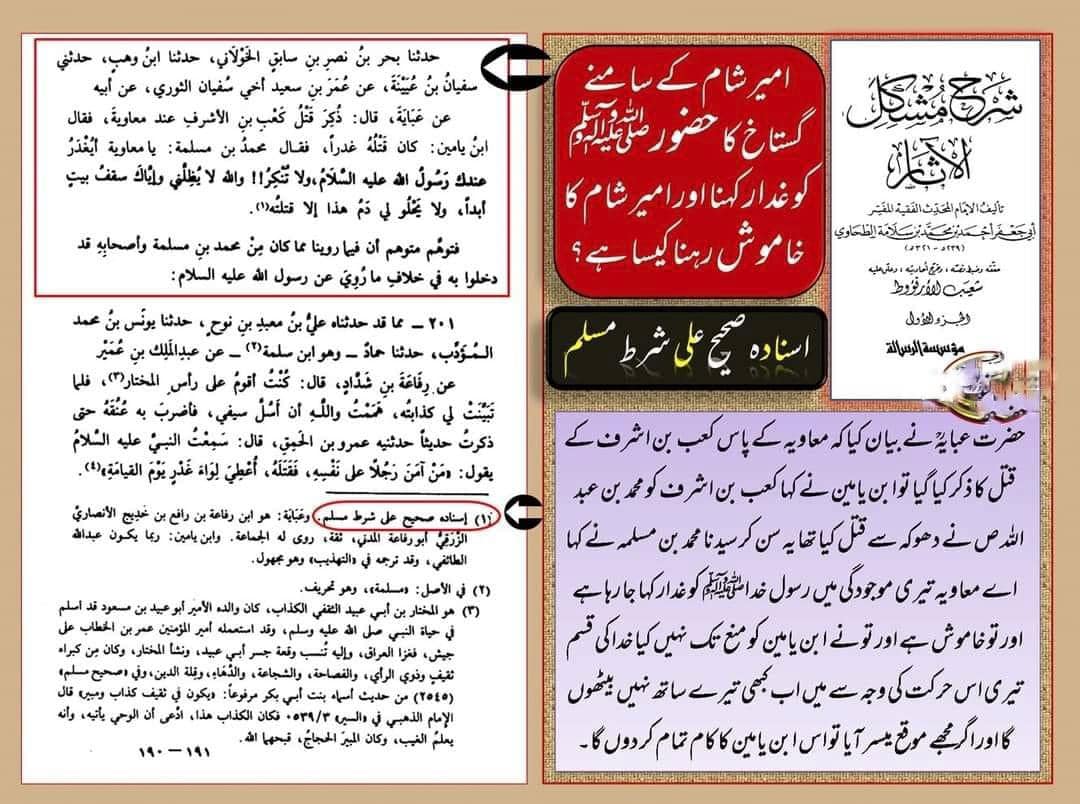 حدثنا بحر بنُ نصرِ بنِ سابقٍ الخَوْلاَنيِ، حدثنا ابنُ وهبٍ، حدثني
سفيانُ بنُ عُيَيْنَةَ، عن عُمَرَ بنِ سعيد أخي سُفيان الثوري، عن أبيه
عن عَبَايَةَ، قال: ذُكِرَ قَتْلُ كَعْبِ بنِ الأشرفِ عند معاويةَ، فقال
ابنُ يامين: كان قَتْلُهُ غدراً، فقال محمدُ بن مسلمة: يا معاوية أيُغْدَرُ
عندك رَسُولُ الله عليه السَّلامُ، ولا تُنْكِرُ!! والله لا يُظِلُّني وإيَّاكَ سقفُ بيتٍ
أبداً، ولا يَخْلُو لي دَمُ هذا إلا قتلتُه(١).
فتوهَّم متوهم أن فيما روينا مما كان مِنْ محمد بن مسلمة وأصحابِهِ قد
دخلوا به في خلافِ ما رُوِيَ عن رسول الله عليه السلام:
٢٠١ ــ مما قد حدثناه عليُّ بنُ معبدِ بنِ نوحٍ، حدثنا يونُس بنُ محمد
المــؤدِّب، حدثنا حمادٌ ــ وهو ابن سلمة(٢) ــ عن عبدالملِك بنِ عُمَيْرٍ
عن رِفَاعَةَ بنِ شَدَّادٍ، قال: كُنْتُ أقومُ على رأسِ المختارِ(٣)، فلما
تَبَيَّنَتْ لي كذابتُه، هَمَمْتُ واللَّهِ أن أسُلَّ سيفي، فأضرِبَ به عُنُقَهُ حتى
ذكرتُ حديثاً حدثنيه عمرو بن الحَمِقِ، قال: سَمِعْتُ النبيَّ عليه السَّلامُ
يقول: «مَنْ آمَنَ رَجُلاً على نَفْسِهِ، فَقَتَلَهُ، أُعْطِيَ لِوَاءَ غَدْرٍ يَوْمَ القيامَةِ»(٤).
(١) إسناده صحيح على شرط مسلم. وعَبَايَة: هو ابن رفاعة بن رافع بن خديج الأنصاريُّ
الزُّرَقِيُّ أبو رفاعة المدني، ثقة، روى له الجماعة. وابن يامين: ربما يكون عبدالله
الطائفي، وقد ترجمه في «التهذيب» وهو مجهول.
(٢) في الأصل: «مسلمة»، وهو تحريف.
(٣) هو المختار بن أبي عبيد الثقفي الكذاب، كان والده الأمير أبو عبيد بن مسعود قد أسلم
في حياة النبي صلى الله عليه وسلم، وقد استعمله أمير المؤمنين عمر بن الخطاب على
جيش، فغزا العراق، وإليه تُنسب وقعة جسر أبي عبيد، ونشأ المختار، وكان مِن كبراء
ثقيفٍ وذوي الرأي، والفصاحة، والشجاعة، والدَّهاءِ، وقِلة الدين، وفي «صحيح مسلم»
(٢٥٤٥) من حديث أسماء بنت أبي بكر مرفوعاً: «يكون في ثقيف كذاب ومبير» قال
الإمام الذهبي في «السير» ٥٣٩/٣: فكان الكذاب هذا، ادَّعى أن الوحي يأتيه، وأنه
يعلمُ الغيب، وكان المبيرَ الحجاجُ، قبحهما الله.
١٩١ – ١٩٠
امیر شام کے سامنے
گستاخ کا حضور ﷺ
کو غدار کہنا اور امیر شام کا
خاموش رہنا کیسا ہے؟
اسنادہ صحیح علی شرط مسلم
شرح مشكل
الآثار
تأليف الإمام المحدث الفقيه المفسر
أبي جعفر أحمد بن محمد بن سلامة الطحاوي
(٢٣٩ھ - ٣٢١ھ)
حققه وضبط نصه، وخرج أحاديثه، وعلق عليه
شعيب الأرنؤوط
الجزء الأول
مؤسسة الرسالة
حضرت عبایہؒ نے بیان کیا کہ معاویہ کے پاس کعب بن اشرف کے
قتل کا ذکر کیا گیا تو ابن یامین نے کہا کعب بن اشرف کو محمد بن عبد
اللہ ص نے دھوکہ سے قتل کیا تھا یہ سن کر سیدنا محمد بن مسلمہ نے کہا
اے معاویہ تیری موجودگی میں رسول خدا ﷺ کو غدار کہا جا رہا ہے
اور تو خاموش ہے اور تو نے ابن یامین کو منع تک نہیں کیا خدا کی قسم
تیری اس حرکت کی وجہ سے میں اب کبھی تیرے ساتھ نہیں بیٹھوں
گا اور اگر مجھے موقع میسر آیا تو اس ابن یامین کا کام تمام کر دوں گا۔